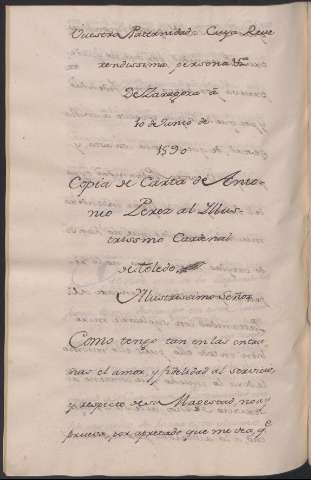 Vuestra Paternidad. Cuya Reve
rendissima persona &a
De Zaragoza á
10 de Junio de
1590
Copia de Carta de Anto-
nio Perez al Illus-
trissimo Cardenal
de Toledo
Illustrissimo Señor
Como tengo tan en las entra
ñas el amor, y fidelidad al servicio,
y respeto de su Magestad, no ay
prueva, por apretado que me vea, qe